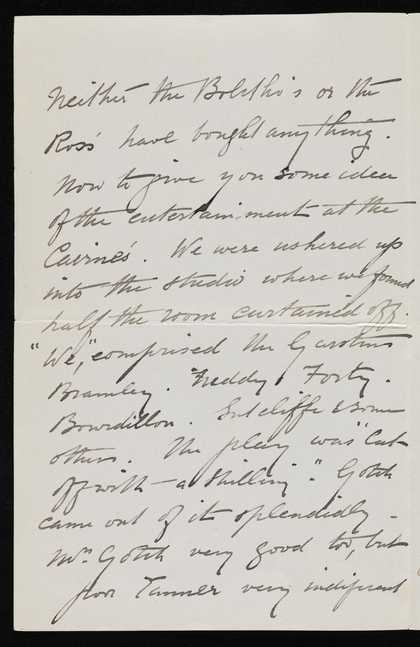 Neither the Bolitho's or the
Ross' have bought anything.
Now to give you some idea
of the entertainment at the
Cairnes'. We were ushered up
into the studio where we found
half the room curtained off.
"We," comprised the Garstins
Bramley. Freddy. Forty.
Bourdillon. Sutcliffe & some
others. The play was "Cut
off with – a Shilling". Gotch
came out of it splendidly –
Mrs Gotch very good too, but
poor Tanner very indiferent